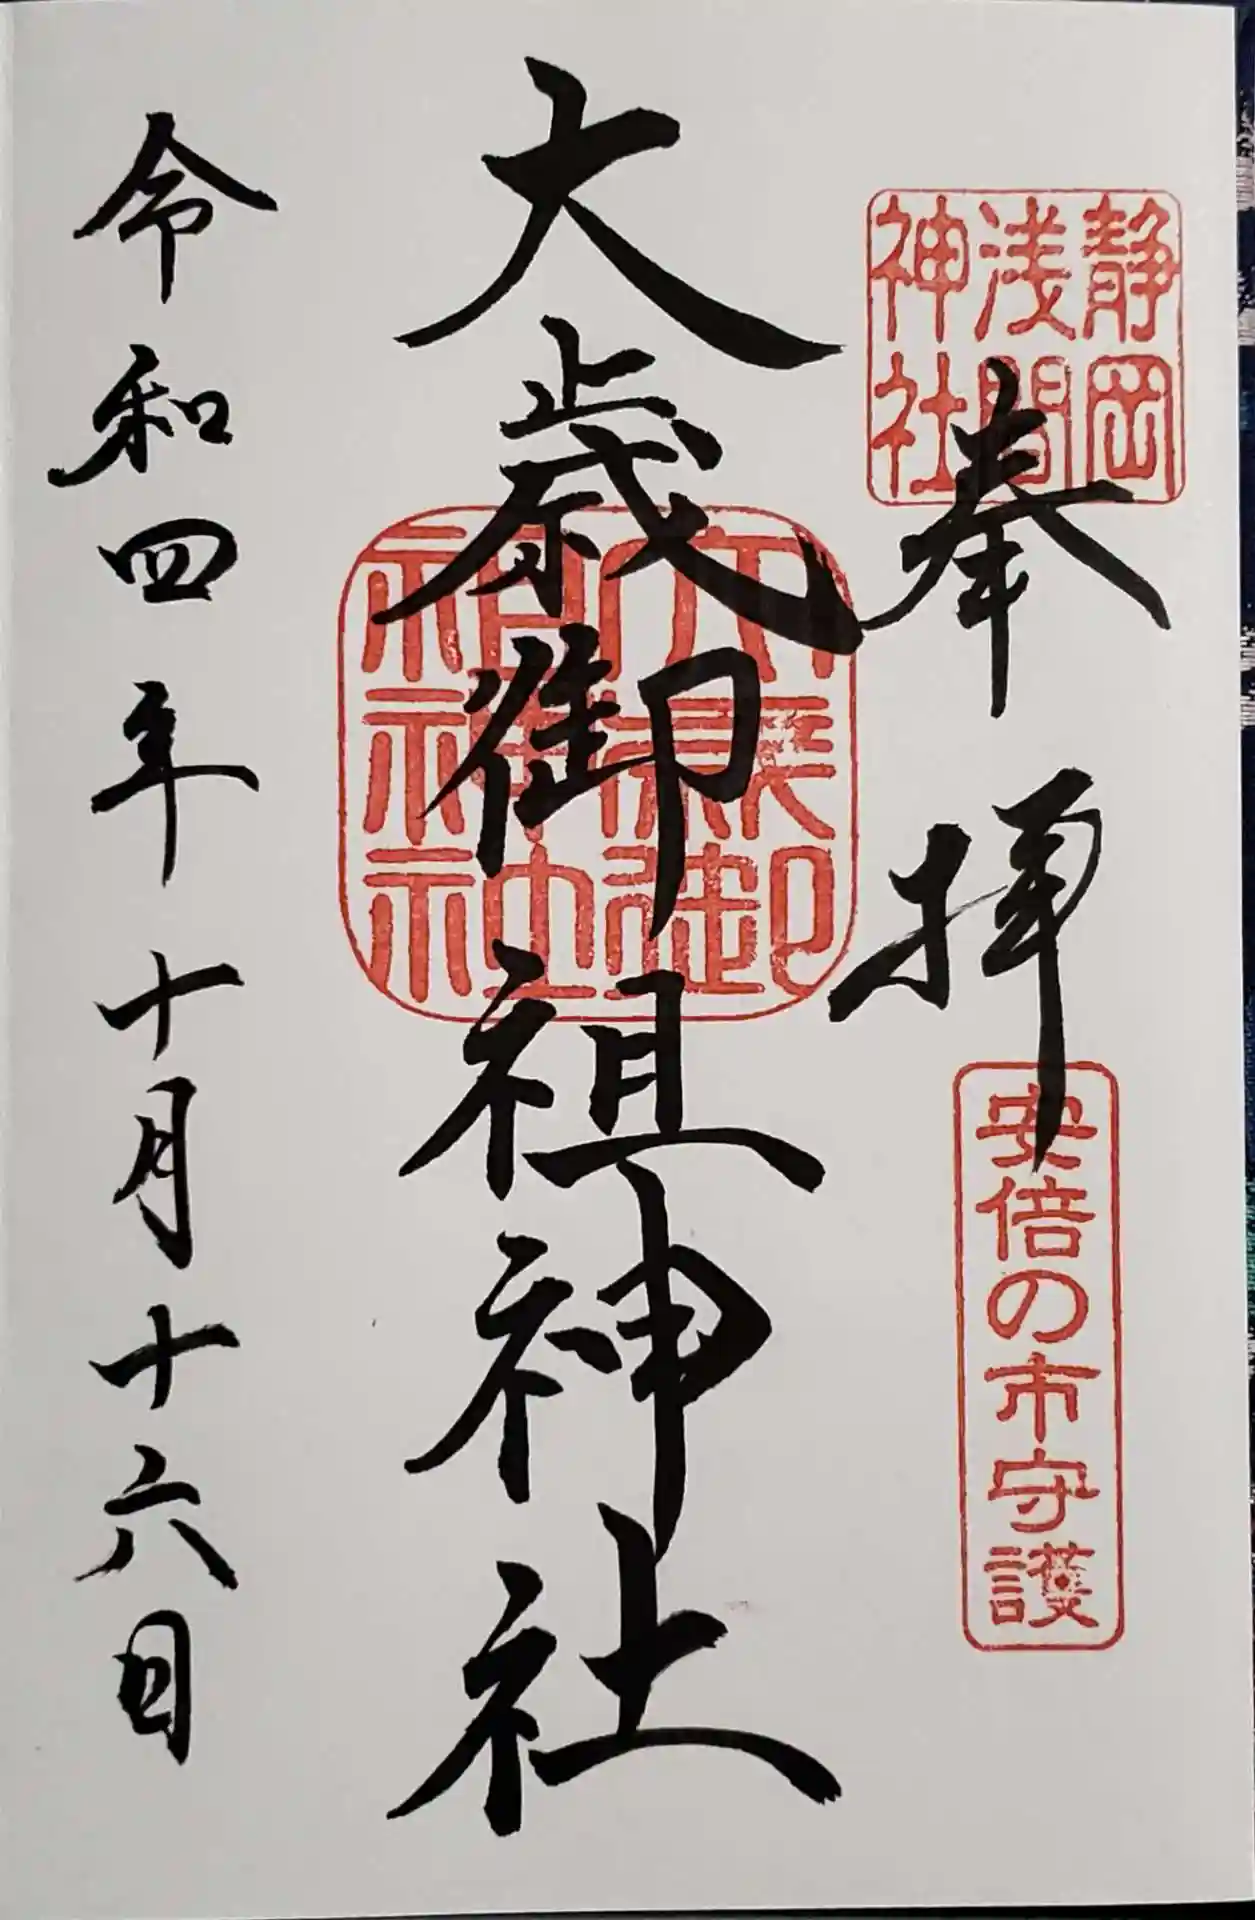 静岡
浅間
神社
奉拝
安倍の市守護
大歳御祖神社
大歳御
祖神社
令和四年十月十六日